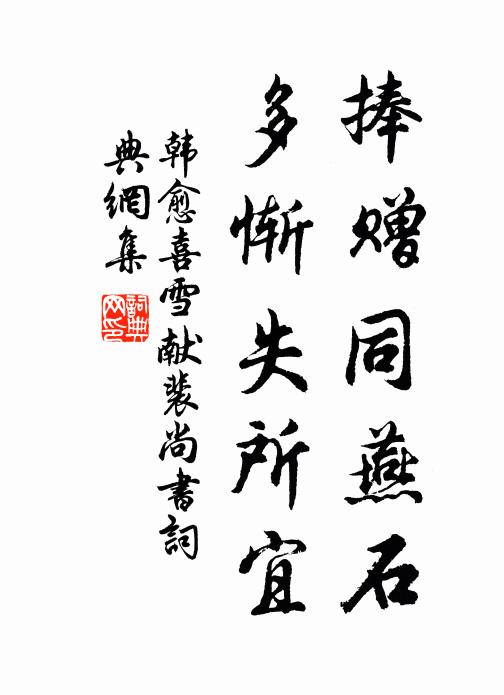 捧赠同燕石
多惭失所宜
韩愈喜雪献裴尚書詞
典網集
詞典网印